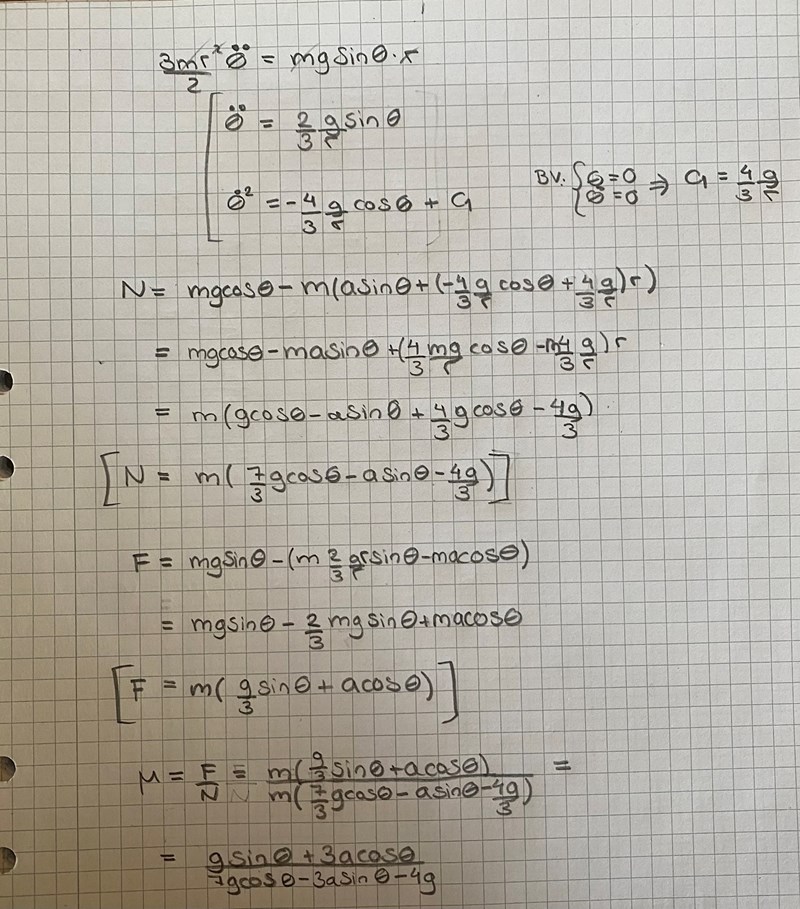 3mr²/2 θ̈ = mg sinθ · r
θ̈ = 2/3 g/r sinθ
θ̇² = -4/3 g/r cosθ + C₁
BV: { θ=0 θ̇=0 ⇒ C₁ = 4/3 g/r
N = mgcosθ - m(asinθ + (-4/3 g/r cosθ + 4/3 g/r) r)
= mgcosθ - masinθ + (4/3 mg/r cosθ - m4/3 g/r) r
= m(gcosθ - asinθ + 4/3 gcosθ - 4g/3)
[N = m(7/3 gcosθ - asinθ - 4g/3)]
F = mgsinθ - (m 2/3 g/r r sinθ - macosθ)
= mgsinθ - 2/3 mgsinθ + macosθ
[F = m(g/3 sinθ + acosθ)]
μ = F/N = m(g/3 sinθ + acosθ) / m(7/3 gcosθ - asinθ - 4g/3) =
= gsinθ + 3acosθ / 7gcosθ - 3asinθ - 4g